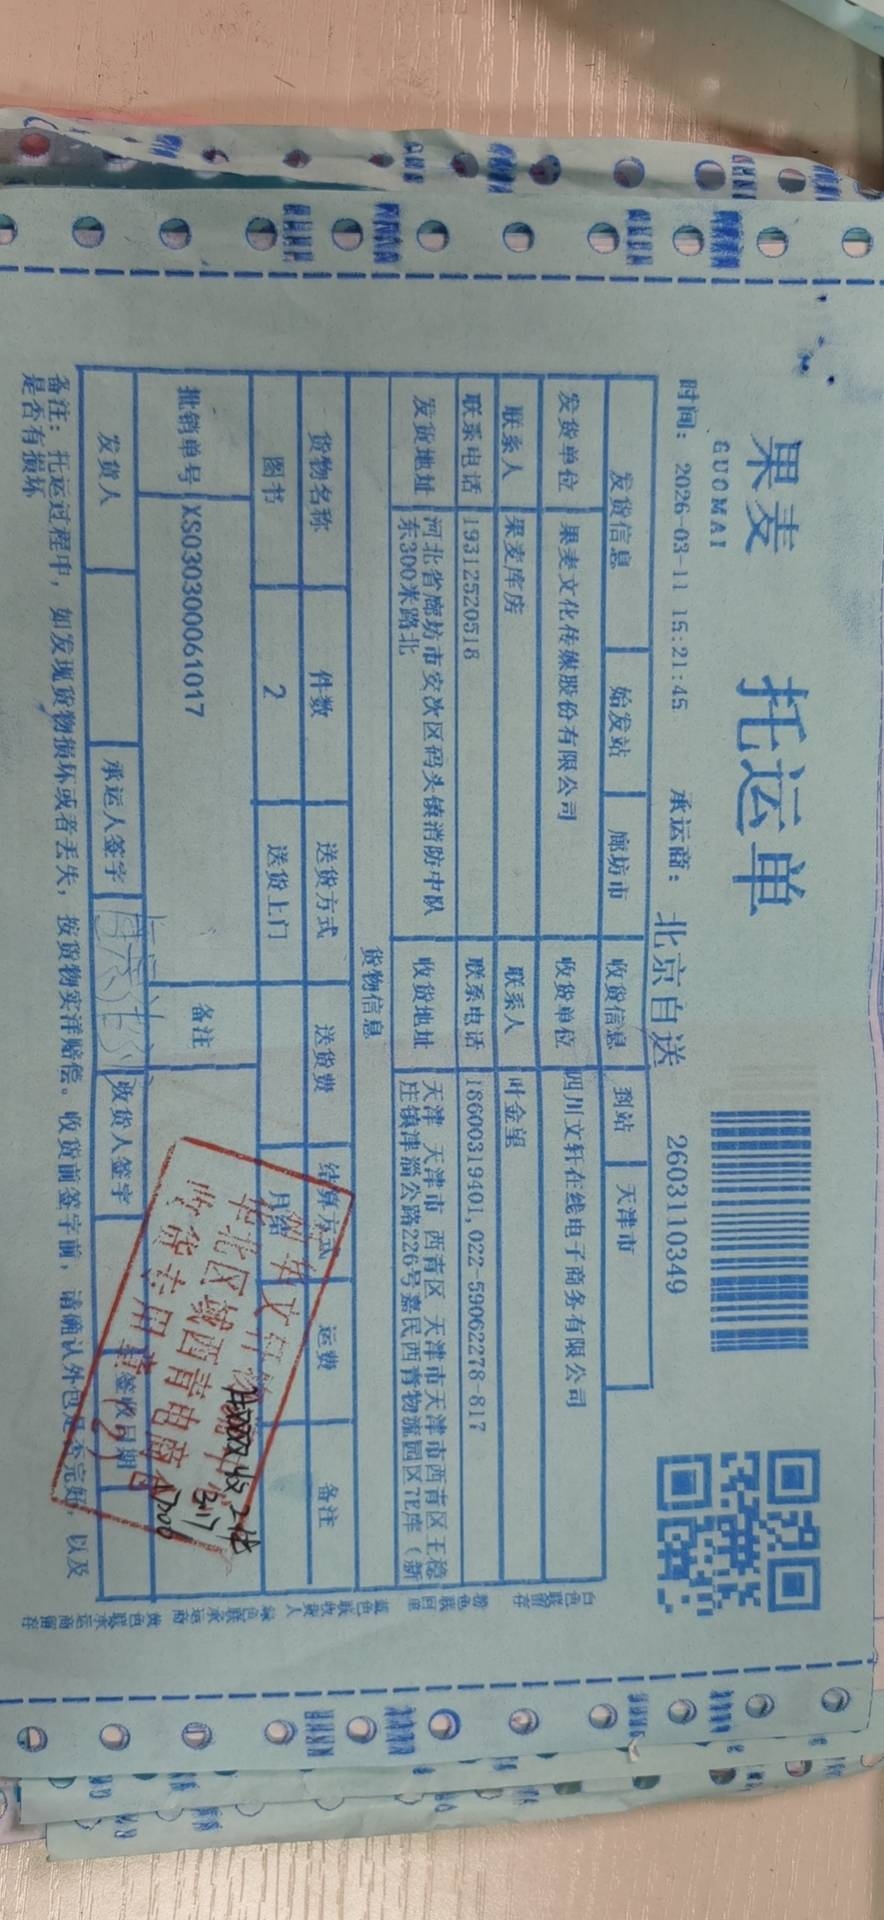 果麦
GUOMAI
托运单
时间: 2026-03-11 15:21:45 承运商: 北京自送 2603110349
发货信息 始发站 廊坊市 收货信息 到站 天津市
发货单位 果麦文化传媒股份有限公司 收货单位 四川文轩在线电子商务有限公司
联系人 果麦库房 联系人 叶金望
联系电话 19312520518 联系电话 18600319401,022-59062278-817
发货地址 河北省廊坊市安次区码头镇消防中队东300米路北 收货地址 天津 天津市 西青区 天津市天津市西青区王稳庄镇津淄公路226号嘉民西青物流园区7E库（新
货物信息
货物名称 件数 送货方式 送货费 结算方式 运费 备注
图书 2 送货上门 月结
批销单号 XS030300061017 备注
发货人 承运人签字 收货人签字 签收日期
备注: 托运过程中, 如发现货物损坏或者丢失, 按货物实洋赔偿。收货前签字前, 请确认外包是否完好, 以及是否有损坏
华北区域西青电商仓
收货专用章
(2)
3.17
白色联留存 粉色联回里 蓝色联收货人 绿色联承运商 黄色联承运商留存